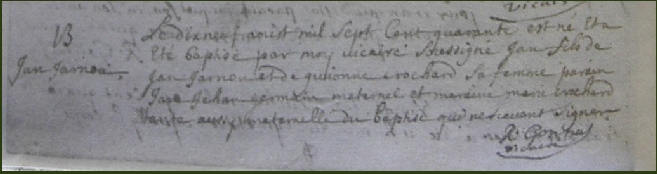 vicaire
13
Le dixneuf aoust mil Sept Cent quarante est ne et a
Eté baptisé par moy vicaire Sbessigné Jan fils de
Jan Jarnou
Jan Jarnou et de guionne crochard Sa femme parein
Jan germain maternel et mareine marie crochard
tante aussy maternelle du baptisé qui ne scavent Signer
vicaire